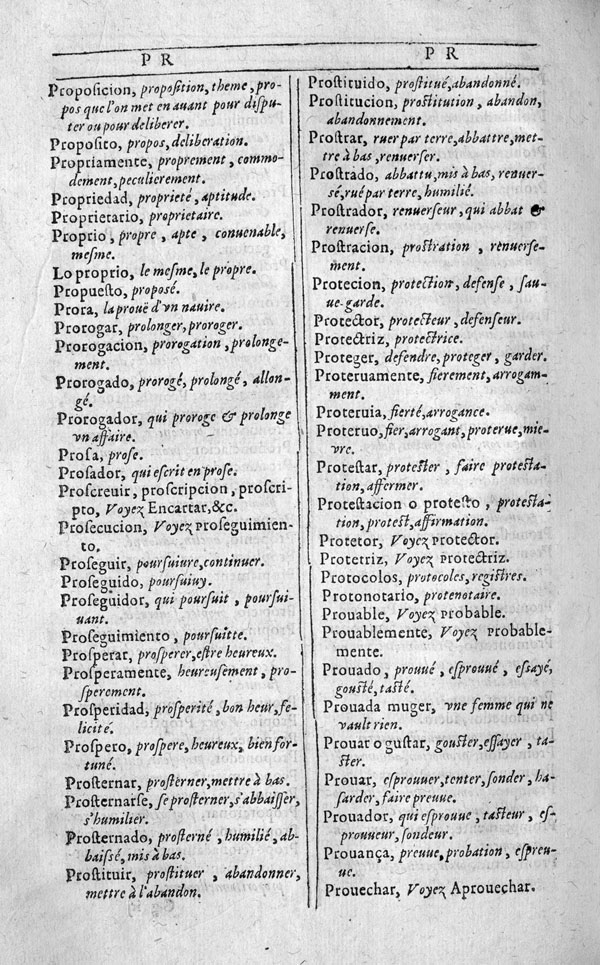 P R
Proposicion, proposition, theme, pro-
pos que l'on met en auant pour dispu-
ter ou pour deliberer.
Proposito, propos, deliberation.
Propriamente, proprement, commo-
dement, peculierement.
Propriedad, proprieté, aptitude.
Proprietario, proprietaire.
Proprio, propre, apte, conuenable,
mesme.
Lo proprio, le mesme, le propre.
Propuesto, proposé.
Prora, la prouë d'vn nauire.
Prorogar, prolonger, proroger.
Prorogacion, prorogation, prolonge-
ment.
Prorogado, prorogé, prolongé, allon-
gé.
Prorogador, qui proroge & prolonge
vn affaire.
Prosa, prose.
Prosador, qui escrit en prose.
Proscreuir, proscripcion, proscri-
pto, Voyez Encartar, &c.
Prosecucion, Voyez Proseguimien-
to.
Proseguir, poursuiure, continuer.
Proseguido, poursuiuy.
Proseguidor, qui poursuit, poursui-
uant.
Proseguimiento, poursuitte.
Prosperar, prosperer, estre heureux.
Prosperamente, heureusement, pro-
sperement.
Prosperidad, prosperité, bon heur, fe-
licité.
Prospero, prospere, heureux, bien for-
tuné.
Prosternar, prosterner, mettre à bas.
Prosternarse, se prosterner, s'abbaisser,
s'humilier.
Prosternado, prosterné, humilié, ab-
baissé, mis à bas.
Prostituir, prostituer, abandonner,
mettre à l'abandon.
P R
Prostituido, prostitué, abandonné.
Prostitucion, prostitution, abandon,
abandonnement.
Prostrar, ruer par terre, abbattre, met-
tre à bas, renuerser.
Prostrado, abbattu, mis à bas, renuer-
sé, rué par terre, humilié.
Prostrador, renuerseur, qui abbat &
renuerse.
Prostracion, prostration, renuerse-
ment.
Protecion, protection, defense, sau-
ue-garde.
Protector, protecteur, defenseur.
Protectriz, protectrice.
Proteger, defendre, proteger, garder.
Proteruamente, fierement, arrogam-
ment.
Proteruia, fierté, arrogance.
Proteruo, fier, arrogant, proterue, mie-
vre.
Protestar, protester, faire protesta-
tion, affermer.
Protestacion o protesto, protesta-
tion, protest, affirmation.
Protetor, Voyez Protector.
Protetriz, Voyez Protectriz.
Protocolos, protocoles, registres.
Protonotario, protenotaire.
Prouable, Voyez Probable.
Prouablemente, Voyez Probable-
mente.
Prouado, prouué, esprouué, essayé,
gousté, tasté.
Prouada muger, vne femme qui ne
vault rien.
Prouar o gustar, gouster, essayer, ta-
ster.
Prouar, esprouuer, tenter, sonder, ha-
sarder, faire preuue.
Prouador, qui esprouue, tasteur, es-
prouueur, sondeur.
Prouança, preuue, probation, espreu-
ue.
Prouechar, Voyez Aprouechar.